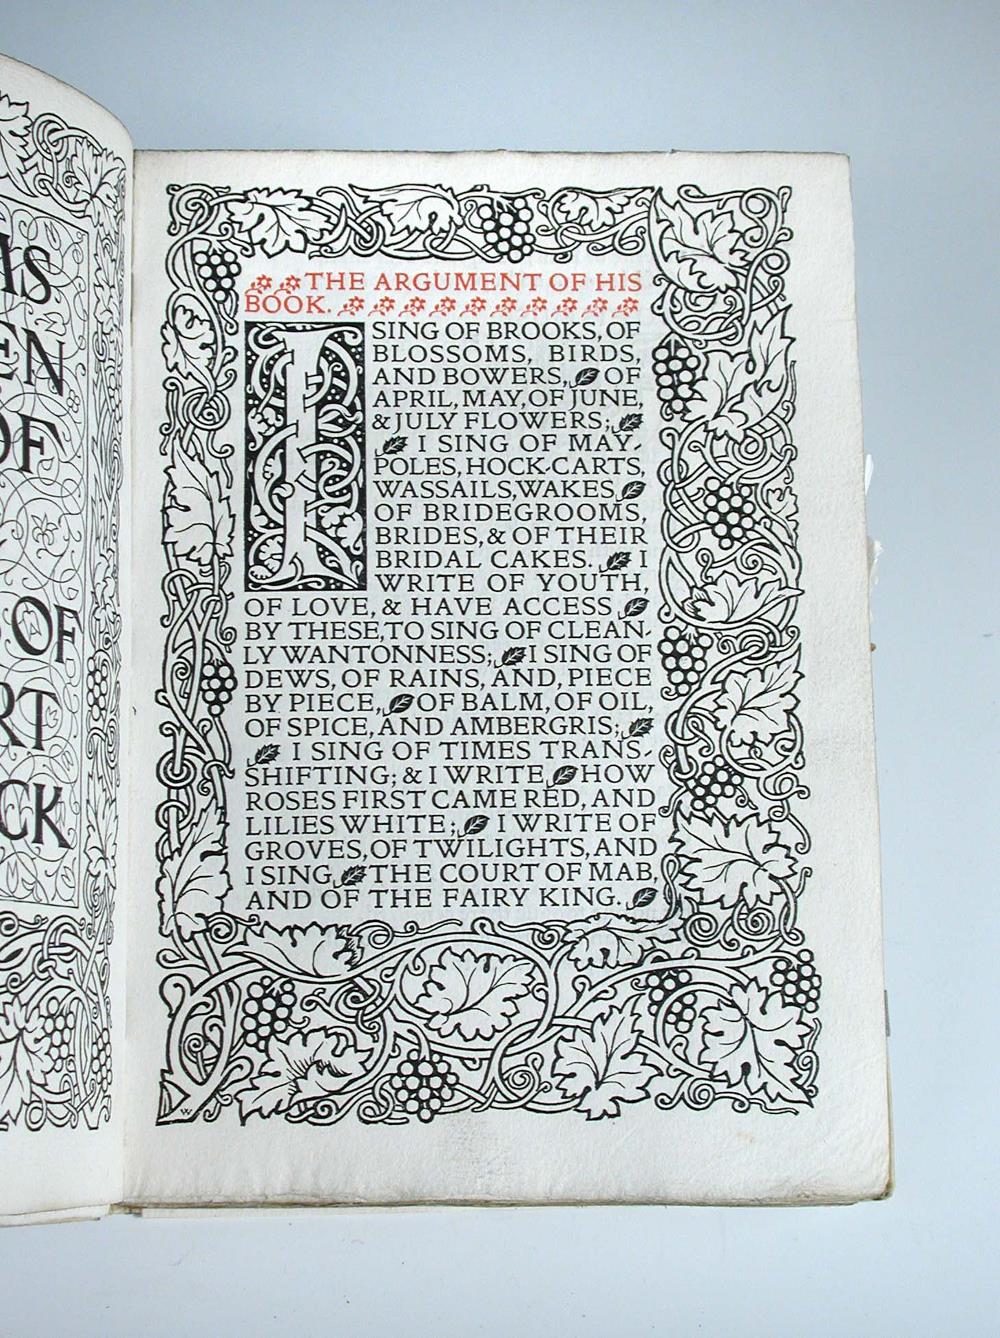 IS
EN
OF
OF
RT
CK
THE ARGUMENT OF HIS
BOOK.
I SING OF BROOKS, OF
BLOSSOMS, BIRDS,
AND BOWERS, OF
APRIL, MAY, OF JUNE,
& JULY FLOWERS;
I SING OF MAY-
POLES, HOCK-CARTS,
WASSAILS, WAKES,
OF BRIDEGROOMS,
BRIDES, & OF THEIR
BRIDAL CAKES. I
WRITE OF YOUTH,
OF LOVE, & HAVE ACCESS
BY THESE, TO SING OF CLEAN-
LY WANTONNESS; I SING OF
DEWS, OF RAINS, AND, PIECE
BY PIECE, OF BALM, OF OIL,
OF SPICE, AND AMBERGRIS;
I SING OF TIMES TRANS-
SHIFTING; & I WRITE HOW
ROSES FIRST CAME RED, AND
LILIES WHITE; I WRITE OF
GROVES, OF TWILIGHTS, AND
I SING THE COURT OF MAB,
AND OF THE FAIRY KING.
W